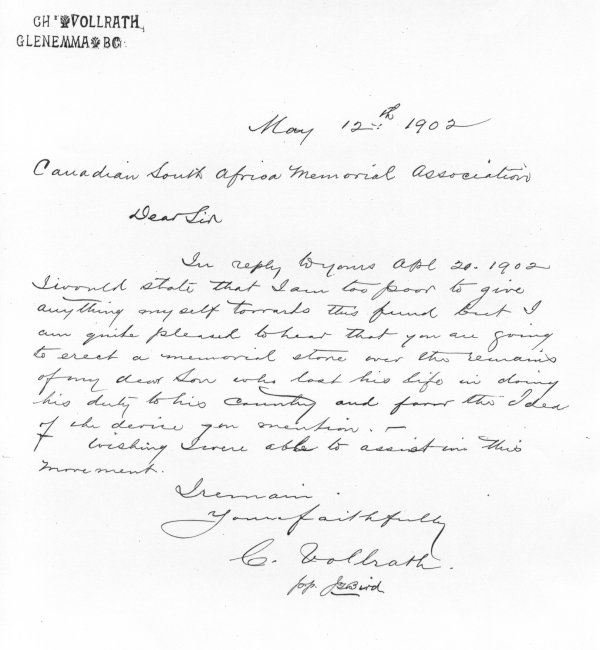 CHˢ VOLLRATH,
GLENEMMA BC
May 12th 1902
Canadian South Africa Memorial Association
Dear Sir
In reply to yours Apl 20. 1902
I would state that I am too poor to give
anything myself towards this fund but I
am quite pleased to hear that you are going
to erect a memorial stone over the remains
of my dear Son who lost his life in doing
his duty to his country and favor the Idea
of the device you mention. –
Wishing I were able to assist in this
movement.
I remain.
Yours faithfully
C. Vollrath.
pp. Bird